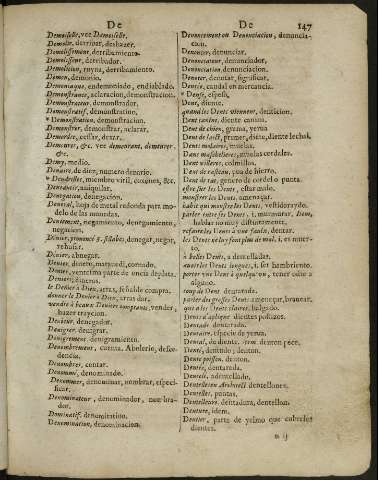 De
De 147
Demoiselle, vee Damoiselle.
Demolir, derribar, deshazer.
Demolissement, derribamiento.
Demolisseur, derribador.
Demolition, ruyna, derribamiento.
Demon, demonio.
Demoniaque, endemoniado, endiablado.
Demonstrance, aclaracion, demonstracion.
Demonstrateur, demonstrador.
Demonstratif, demonstrativo.
Demonstration, demonstracion.
Demonstrer, demonstrar, aclarar.
Demordre, cessar, dexar.
Demeurer, &c. vee demourant, demeurer,
&c.
Demy, medio.
Denaire, de diez, numero denario.
Deneantir, aniquilar.
Denegation, denegacion.
Deneral, hoja de metal redonda para mo-
delo de las monedas.
Deniement, negamiento, denegamiento,
negacion.
Denier, prononcé 3. syllabes, denegar, negar,
rehusar.
Denier, abnegar.
Denier, dinero, maravedi, cornado.
Denier, veintena parte de uncia de plata.
Deniers, dineros.
le Denier à Dieu, arras, señal de compra.
donner le Denier à Dieu, arras dar.
vendre à beaux Deniers comptans, vender,
hazer traycion.
Denieur, denegador.
Denigrer, denigrar.
Denigrement, denigramiento.
Denombrement, cuenta. Abolerio, descen-
dencia.
Denombrer, contar.
Denommé, denominado.
Denommer, denominar, nombrar, especi-
ficar.
Denominateur, denominador, nombra-
dor.
Denominatif, denominativo.
Denomination, denominacion.
Denoncement ou Denonciation, denuncia-
cion.
Denoncer, denunciar.
Denonciateur, denunciador.
Denonciation, denunciacion.
Denoter, denotar, significar.
Denrée, caudal en mercancia.
Dense, espesso.
Dent, diente.
quand les Dents viennent, denticion.
Dent canine, diente canino.
Dent de chien, grama, yerva.
Dent de laict, primer, dicho, diente lechal.
Dents molaires, muelas.
Dents maschelieres, muelas cordales.
Dents oeilleres, colmillos.
Dent de rasteau, pua de hierro.
Dent de rat, genero de cordel o punta.
estre sur les Dents, estar malo.
monstrer les Dents, amenaçar.
parler entre ses Dents, murmurar,
hablar no muy distintamente.
refaire les Dents à une faulx, dentar.
à belles Dents, a dentelladas.
avoir les Dents longues, ser hambriento.
porter une Dent à quelqu'un, tener odio a
alguno.
coup de Dent, dentarada.
parler des grosses Dents, amenaçar, bravear.
Dents d'aplique, dientes postizos.
Dentade, dentarada.
Dentaire, especie de yerva.
Dental, de diente. Item, denton pece.
Denté, dentudo, denton.
Dente poisson, denton.
Dentée, dentarada.
Dentelé, adentellado.
Denteleure, Architect. dentellones.
Dentelles, puntas.
Denteleure, dentadura, dentellon.
Denture, idem.
Dentier, parte de yelmo que cobre los
dientes.